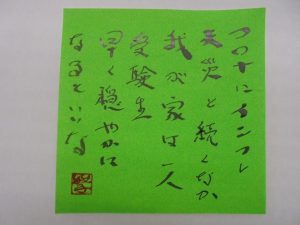 コロナにインフレ
天災と続くなか
我が家は一人
受験生
早く穏やかに
なるといいな